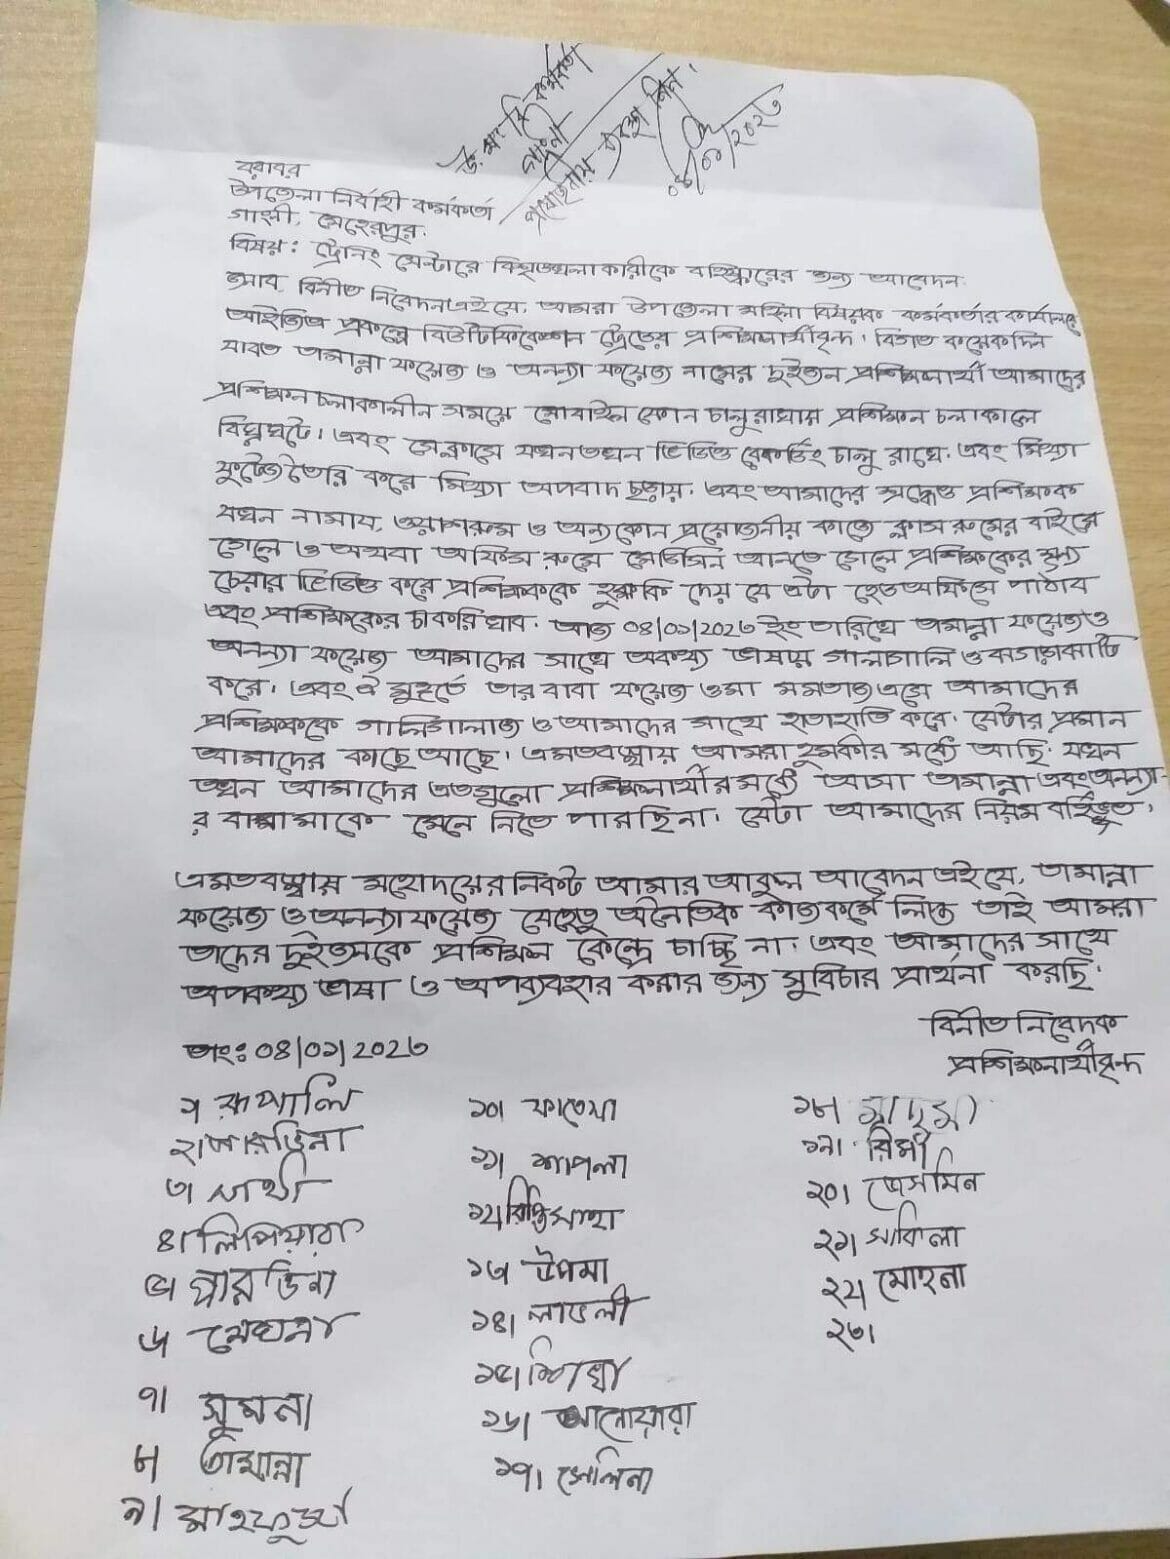 উ: ম: বি কর্মকর্তা
গাংনী
প্রয়োজনীয় ব্যবস্থা নিন।
০৪/০১/২০২৩
বরাবর
উপজেলা নির্বাহী কর্মকর্তা
গাংনী, মেহেরপুর।
বিষয়: ট্রেনিং সেন্টারে বিশৃঙ্খলাকারীকে বহিস্কারের জন্য আবেদন।
জনাব, বিনীত নিবেদন এই যে, আমরা উপজেলা মহিলা বিষয়ক কর্মকর্তার কার্যালয়ে
আইজিএ প্রকল্পে বিউটিফিকেশন ট্রেডের প্রশিক্ষনার্থীবৃন্দ। বিগত কয়েকদিন
যাবত তামান্না ফয়েজ ও অনন্যা ফয়েজ নামের দুইজন প্রশিক্ষনার্থী আমাদের
প্রশিক্ষন চলাকালীন সময়ে মোবাইল ফোন চালু রাখায় প্রশিক্ষন চলাকালে
বিঘ্নঘটে। এবং সে ক্লাসে যখন তখন ভিডিও রেকর্ডিং চালু রাখে। এবং মিথ্যা
ফুটেজ তৈরি করে মিথ্যা অপবাদ ছড়ায়। এবং আমাদের শ্রদ্ধেও প্রশিক্ষক
যখন নামায, ওয়াশরুম ও অন্যকোন প্রয়োজনীয় কাজে ক্লাস রুমের বাইরে
গেলে ও অথবা অফিস রুমে মেডিসিন আনতে গেলে প্রশিক্ষকের শূন্য
চেয়ার ভিডিও করে প্রশিক্ষককে হুমকি দেয় যে এটা হেড অফিসে পাঠাব
এবং প্রশিক্ষকের চাকরি খাব। আজ ০৪/০১/২০২৩ ইং তারিখে তামান্না ফয়েজ ও
অনন্যা ফয়েজ আমাদের সাথে অকথ্য ভাষায় গালাগালি ও ঝগড়াঝাটি
করে। এবং ঐ মুহূর্তে তার বাবা ফয়েজ ও মা মমতাজ এসে আমাদের
প্রশিক্ষককে গালিগালাজ ও আমাদের সাথে হাতাহাতি করে। যেটার প্রমান
আমাদের কাছে আছে। এমতবস্থায় আমরা হুমকীর মধ্যে আছি। যখন
তখন আমাদের এতগুলো প্রশিক্ষনার্থীর মধ্যে আসা তামান্না এবং অনন্যা-
র বাবা মাকে মেনে নিতে পারছিনা। যেটা আমাদের নিয়ম বর্হিভূত।
এমতবস্থায় মহোদয়ের নিকট আমার আকুল আবেদন এই যে, তামান্না
ফয়েজ ও অনন্যা ফয়েজ যেহেতু অনৈতিক কাজকর্মে লিপ্ত তাই আমরা
তাদের দুইজনকে প্রশিক্ষন কেন্দ্রে চাচ্ছি না। এবং আমাদের সাথে
অপকথ্য ভাষা ও অপব্যবহার করার জন্য সুবিচার প্রার্থনা করছি।
বিনীত নিবেদক
প্রশিক্ষনার্থীবৃন্দ
তাং: ০৪/০১/২০২৩
১ রূপালি
২। পারভিনা
৩। সাথী
৪। লিপিয়ারা
৫। পারভিনা
৬। মেঘনা
৭। সুমনা
৮। তামান্না
৯। মাহফুজা
১০। ফাতেমা
১১। শাপলা
১২। রিক্তিসাহা
১৩। উপমা
১৪। লাভলী
১৫। শিখা
১৬। আনোয়ারা
১৭। সেলিনা
১৮। মাসুমা
১৯। রিমী
২০। জেসমিন
২১। সাবিলা
২২। মোহনা
২৩।